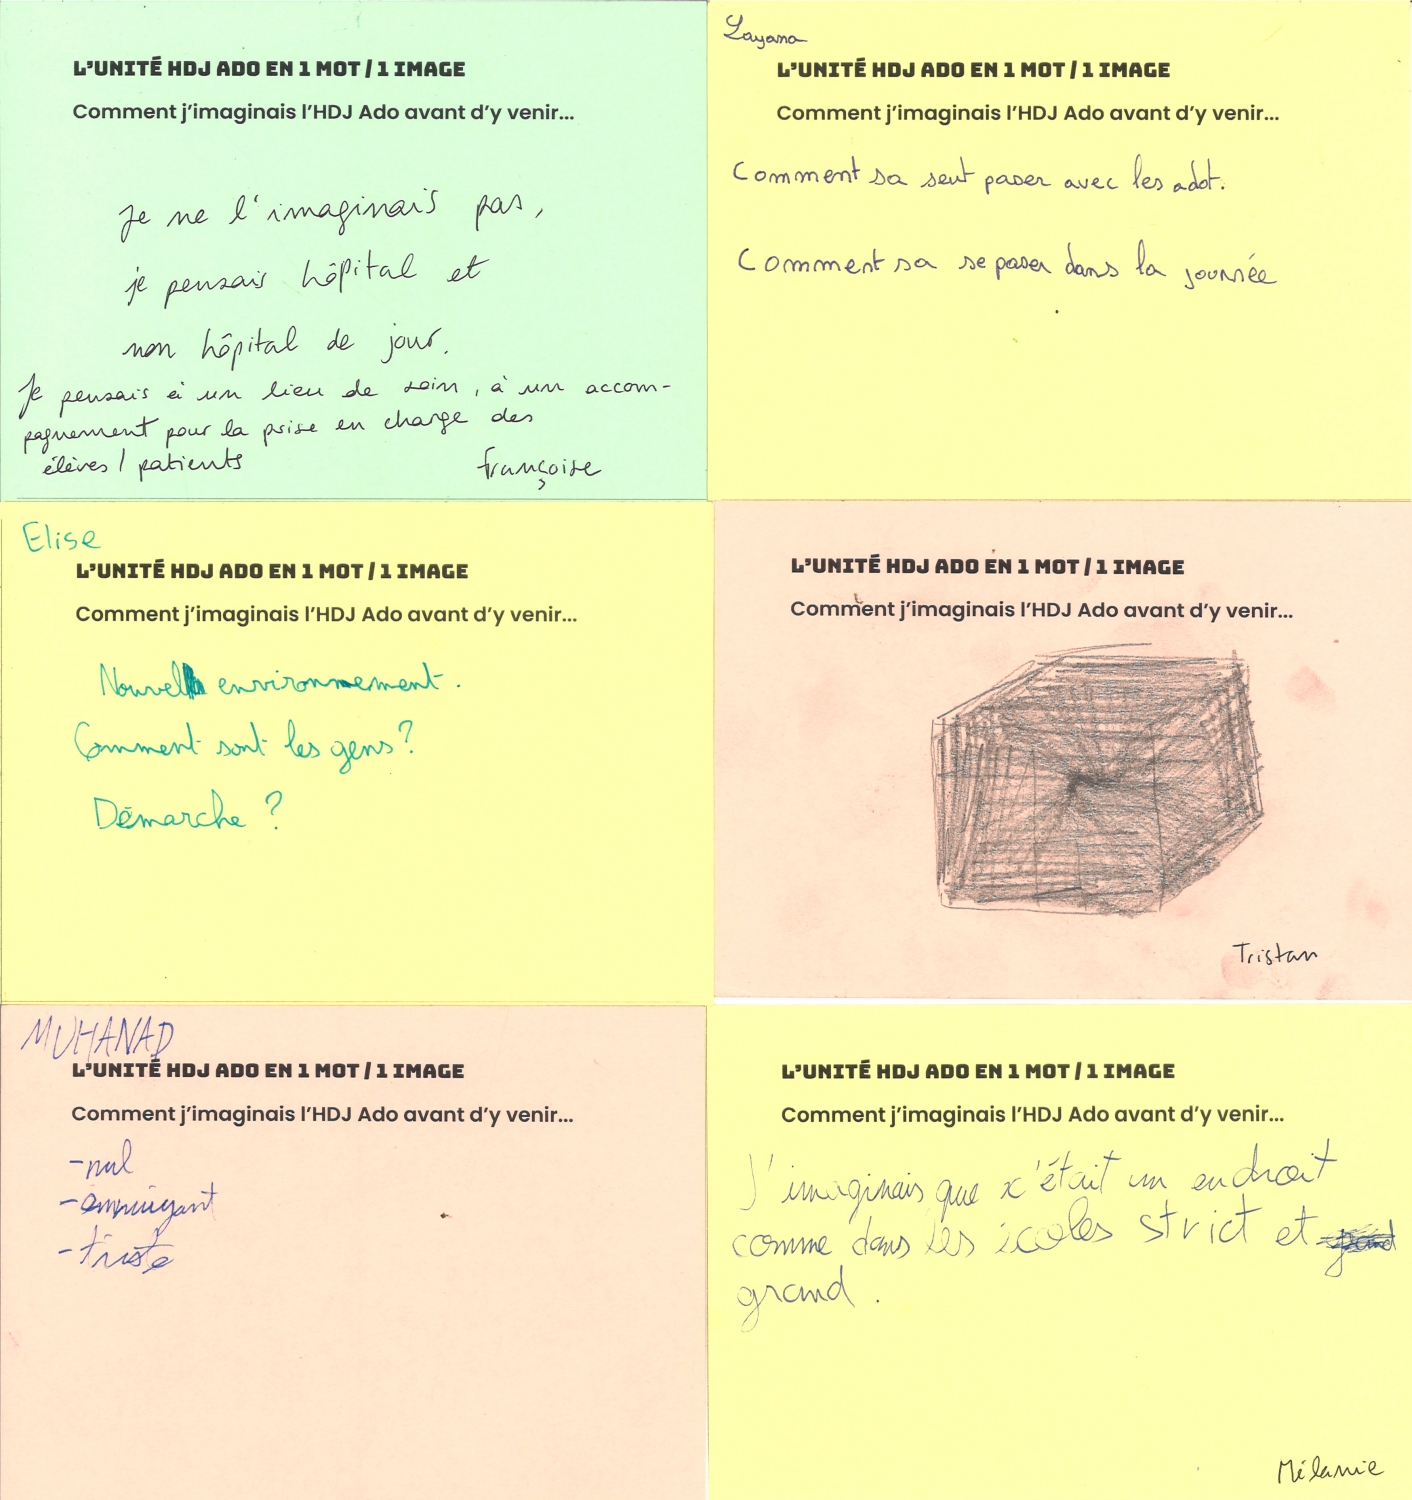 L'UNITÉ HDJ ADO EN 1 MOT / 1 IMAGE
Comment j'imaginais l'HDJ Ado avant d'y venir...
Je ne l'imaginais pas,
je pensais hôpital et
non hôpital de jour.
Je pensais à un lieu de soin, à un accom-
pagnement pour la prise en charge des
élèves / patients
Françoise
Layana
L'UNITÉ HDJ ADO EN 1 MOT / 1 IMAGE
Comment j'imaginais l'HDJ Ado avant d'y venir...
Comment sa seut paser avec les adot.
Comment sa se paser dans la journée
Elise
L'UNITÉ HDJ ADO EN 1 MOT / 1 IMAGE
Comment j'imaginais l'HDJ Ado avant d'y venir...
Nouvel environnement.
Comment sont les gens?
Démarche ?
L'UNITÉ HDJ ADO EN 1 MOT / 1 IMAGE
Comment j'imaginais l'HDJ Ado avant d'y venir...
Tristan
MUHANAD
L'UNITÉ HDJ ADO EN 1 MOT / 1 IMAGE
Comment j'imaginais l'HDJ Ado avant d'y venir...
-nul
-ennuiyant
-triste
L'UNITÉ HDJ ADO EN 1 MOT / 1 IMAGE
Comment j'imaginais l'HDJ Ado avant d'y venir...
J'imaginais que c'était un endroit
comme dans les écoles strict et
grand.
Mélanie